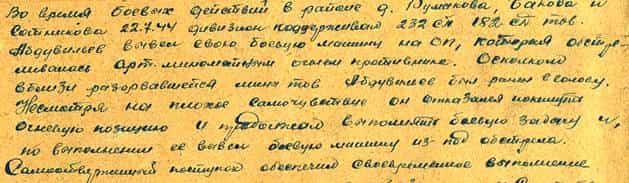 Во время боевых действий в районе д. Румакова, Бакова и
Сотникова 22.7.44 дивизион поддерживал 232 сп 182 сд тов.
Абдувильев вывел свою боевую машину на ОП, которая обстре-
ливалась арт. минометным огнем противника. Осколком
вблизи разорвавшейся мины тов Абдувилиев был ранен в голову.
Несмотря на плохое самочувствие он отказался покинуть
огневую позицию и продолжал выполнять боевую задачу и,
по выполнении ее вывел боевую машину из под обстрела.
Самоотверженный поступок обеспечил своевременное выполнение